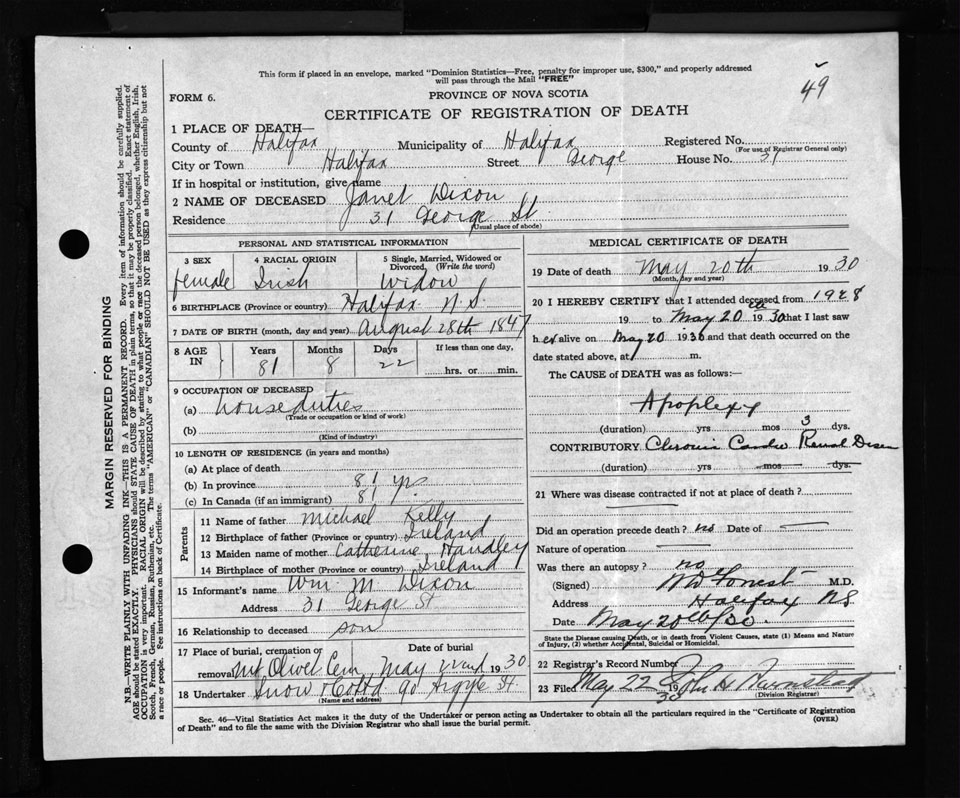 49
This form if placed in an envelope, marked "Dominion Statistics—Free, penalty for improper use, $300," and properly addressed
will pass through the Mail "FREE"
FORM 6.
PROVINCE OF NOVA SCOTIA
CERTIFICATE OF REGISTRATION OF DEATH
MARGIN RESERVED FOR BINDING
N.B.—WRITE PLAINLY WITH UNFADING INK—THIS IS A PERMANENT RECORD. Every item of information should be carefully supplied.
AGE should be stated EXACTLY. PHYSICIANS should STATE CAUSE OF DEATH in plain terms, so that it may be properly classified. Exact statement of
OCCUPATION is very important. RACIAL ORIGIN will be described by stating to what people or race the deceased person belonged, whether English, Irish,
Scotch, French, German, Russian, Ruthenian, etc. The terms "AMERICAN" or "CANADIAN" SHOULD NOT BE USED as they express citizenship but not
a race or people. See instructions on back of Certificate.
1 PLACE OF DEATH—
County of Halifax Municipality of Halifax Registered No.
(For use of Registrar General only)
City or Town Halifax Street George House No. 31
If in hospital or institution, give name
2 NAME OF DECEASED Janet Dixon
Residence 31 George St
(Usual place of abode)
PERSONAL AND STATISTICAL INFORMATION
3 SEX 4 RACIAL ORIGIN 5 Single, Married, Widowed or
Divorced, (Write the word)
female Irish Widow
6 BIRTHPLACE (Province or country) Halifax N.S.
7 DATE OF BIRTH (month, day and year) August 28th 1847
8 AGE IN Years Months Days If less than one day,
81 8 22 hrs. or min.
9 OCCUPATION OF DECEASED
(a) house duties
(Trade or occupation or kind of work)
(b)
(Kind of industry)
10 LENGTH OF RESIDENCE (in years and months)
(a) At place of death
(b) In province 81 yrs
(c) In Canada (if an immigrant) 81
Parents
11 Name of father Michael Kelly
12 Birthplace of father (Province or country) Ireland
13 Maiden name of mother Catherine Handley
14 Birthplace of mother (Province or country) Ireland
15 Informant's name Wm M. Dixon
Address 31 George St
16 Relationship to deceased son
17 Place of burial, cremation or removal Date of burial
Mt Olivet Cem May 22nd 1930
18 Undertaker Snow 90 Argyle St
(Name and address)
MEDICAL CERTIFICATE OF DEATH
19 Date of death May 20th 1930
(Month, day and year)
20 I HEREBY CERTIFY that I attended deceased from 1928
19 to May 20th 1930 that I last saw
her alive on May 20 1930 and that death occurred on the
date stated above, at m.
The CAUSE of DEATH was as follows:—
Apoplexy
(duration) yrs mos 3 dys.
CONTRIBUTORY Chronic Cardio Renal Disease
(duration) yrs mos dys.
21 Where was disease contracted if not at place of death?
Did an operation precede death? no Date of —
Nature of operation —
Was there an autopsy? no
(Signed) M.D.
Address Halifax NS
Date May 20th/30.
State the Disease causing Death, or in death from Violent Causes, state (1) Means and Nature
of Injury, (2) whether Accidental, Suicidal or Homicidal.
22 Registrar's Record Number
23 Filed May 22 1930 John H
(Division Registrar)
Sec. 46—Vital Statistics Act makes it the duty of the Undertaker or person acting as Undertaker to obtain all the particulars required in the "Certificate of Registration
of Death" and to file the same with the Division Registrar who shall issue the burial permit.
(OVER)